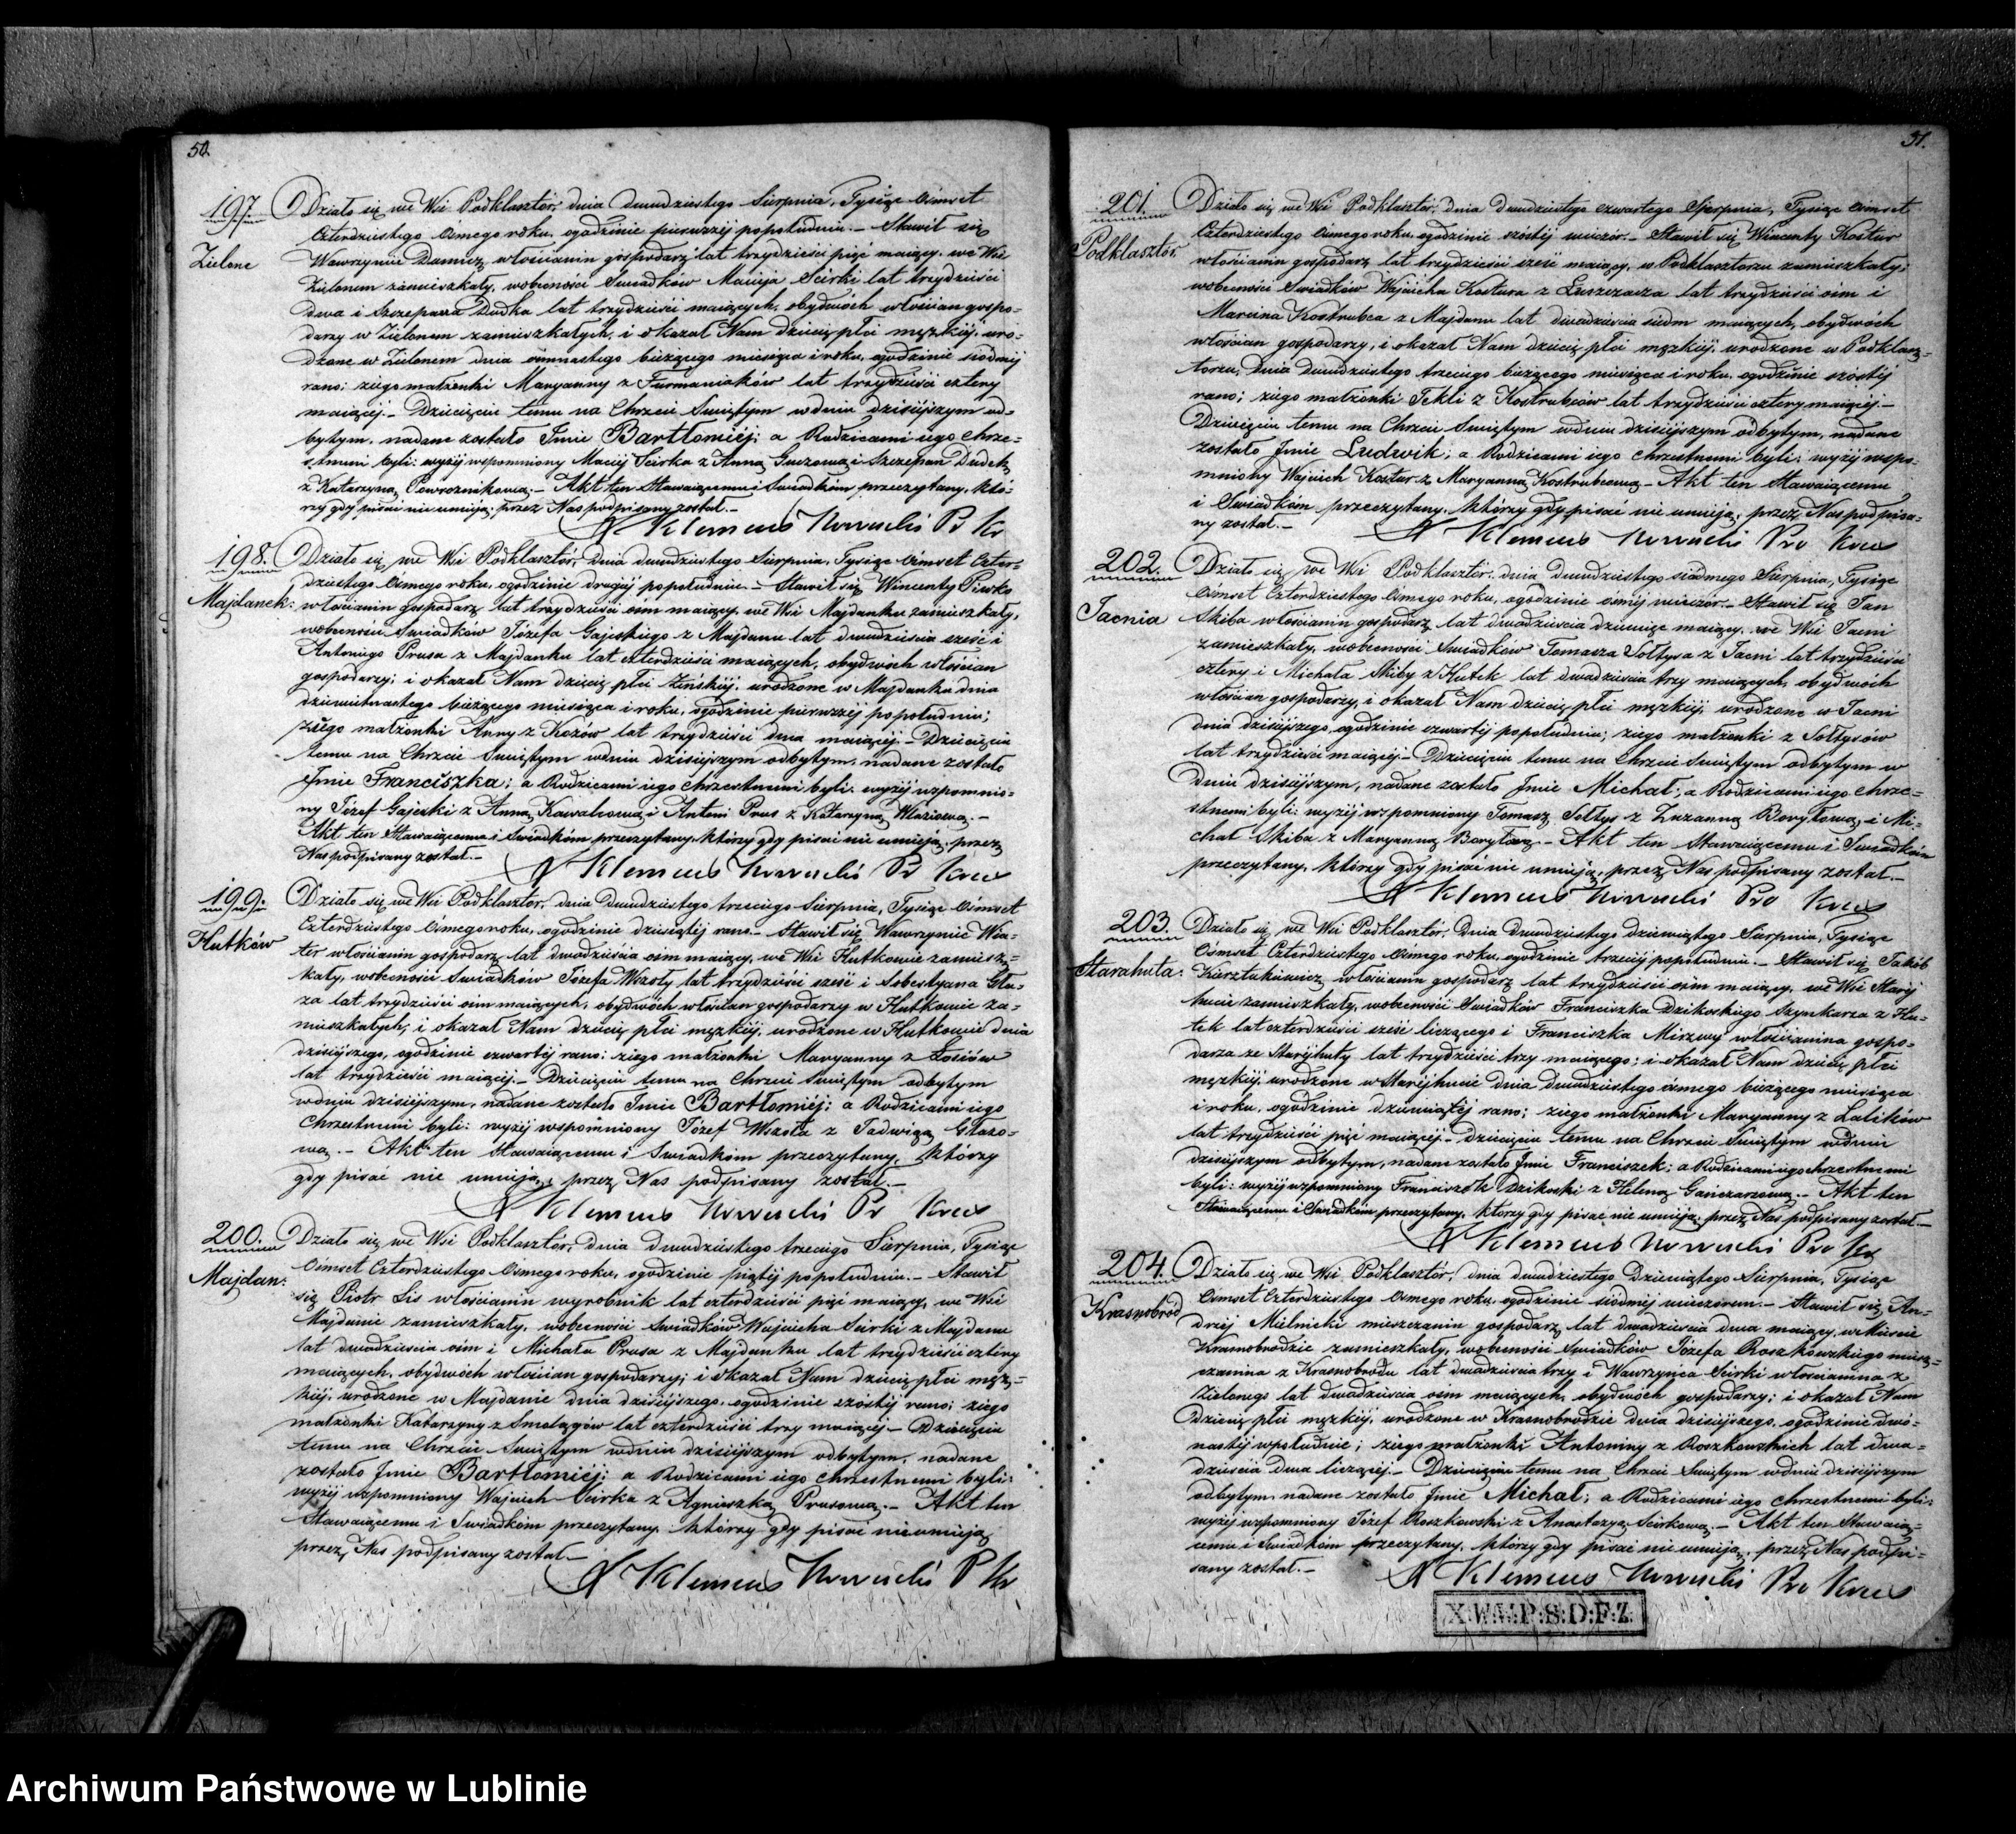 50.
197.
Zielone
Działo się we Wsi Podklasztór, dnia dwudziestego Sierpnia, Tysiąc Ośmset
Czterdziestego Osmego roku, ogodzinie pierwszej popołudniu. – Stawił się
Wawrzyniec Dumicz włościanin gospodarz lat trzydzieści pięć maiący, we Wsi
Zielonem zamieszkały, wobecności Swiadków Macieja Scirki lat trzydzieści
dwa i Szczepana Dudka lat trzydzieści maiących, obydwóch włościan gospo-
darzy w Zielonem zamieszkałych, i okazał Nam dziecię płci męzkiej, uro-
dzone w Zielonem dnia ośmnastego bieżącego miesiąca i roku, ogodzinie siódmej
rano; zjego małżonki Maryanny z Furmaniaków lat trzydzieści cztery
maiącej. – Dziecięciu temu na Chrzcie Swiętym wdniu dzisiejszym od-
bytym, nadane zostało Jmie Bartłomiéj; a Rodzicami iego chrze-
stnemi byli: wyżej wspomniony Maciej Scirka z Anną Guzową i Szczepan Dudek
z Katarzyną Powroznikową. – Akt ten Stawaiącemu i Swiadkóm przeczytany, któ-
rzy gdy pisać nie umieją, przez Nas podpisany został. –
X Klemens Nowucki P Kr
198.
Majdanek:
Działo się we Wsi Podklasztór, dnia dwudziestego Sierpnia, Tysiąc Ośmset Czter-
dziestego Osmego roku, ogodzinie drugiej popołudniu. – Stawił się Wincenty
włościanin gospodarz lat trzydzieści ośm maiący, we Wsi Majdanku zamieszkały,
wobecności Swiadków Józefa Gajeskiego z Majdanu lat dwadzieścia sześć i
Antoniego Prusa z Majdanku lat czterdzieści maiących, obydwóch włościan
gospodarzy; i okazał Nam dziecię płci żeńskiej, urodzone w Majdanku dnia
dziewiętnastego bieżącego miesiąca i roku, ogodzinie pierwszej popołudniu;
zjego małżonki Anny z Kozów lat trzydzieści dwa maiącej. – Dziecięciu
temu na Chrzcie Swiętym wdniu dzisiejszym odbytym, nadane zostało
Jmie Franciszka; a Rodzicami iego chrzestnemi byli: wyżej wspomnio-
ny Józef Gajeski z Anną Kawalcową i Antoni Prus z Katarzyną Własiową. –
Akt ten Stawaiącemu i Swiadkóm przeczytany, którzy gdy pisać nie umieją, przez
Nas podpisany został. –
X Klemens Nowucki Pr Kres
199.
Hutków
Działo się we Wsi Podklasztór, dnia dwudziestego trzeciego Sierpnia, Tysiąc Ośmset
Czterdziestego Osmego roku, ogodzinie dziesiątej rano. – Stawił się Wawrzyniec Wia-
ter włościanin gospodarz lat dwadzieścia ośm maiący, we Wsi Hutkowie zamiesz-
kały, wobecności Swiadków Józefa Wszoły lat trzydzieści sześć i Sobestyana Gła-
za lat trzydzieści ośm maiących, obydwóch włościan gospodarzy w Hutkowie za-
mieszkałych; i okazał Nam dziecię płci męzkiej, urodzone w Hutkowie dnia
dzisiejszego, ogodzinie czwartej rano; zjego małżonki Maryanny z Łosiów
lat trzydzieści maiącej. – Dziecięciu temu na Chrzcie Swiętym odbytym
wdniu dzisiejszym, nadane zostało Jmie Bartłomiéj; a Rodzicami iego
Chrzestnemi byli: wyżej wspomniony Józef Wszoła z Jadwigą Głazo-
wą. – Akt ten Stawaiącemu i Swiadkóm przeczytany, którzy
gdy pisać nie umieją, przez Nas podpisany został. –
X Klemens Nowucki Pr Kres
200.
Majdan:
Działo się we Wsi Podklasztór, dnia dwudziestego trzeciego Sierpnia, Tysiąc
Ośmset Czterdziestego Osmego roku, ogodzinie piątej popołudniu. – Stawił
się Piotr Lis włościanin wyrobnik lat czterdzieści pięć maiący, we Wsi
Majdanie zamieszkały, wobecności Swiadków Wojciecha Scirki z Majdanu
lat dwadzieścia ośm i Michała Prusa z Majdanku lat trzydzieści cztery
maiących, obydwóch włościan gospodarzy; i okazał Nam dziecię płci męz-
kiej, urodzone w Majdanie dnia dzisiejszego, ogodzinie szóstej rano; zjego
małżonki Katarzyny z Smolągów lat czterdzieści trzy maiącej. – Dziecięciu
temu na Chrzcie Swiętym wdniu dzisiejszym odbytym, nadane
zostało Jmie Bartłomiéj; a Rodzicami iego chrzestnemi byli:
wyżej wspomniony Wojciech Scirka z Agnieszką Prusową. – Akt ten
Stawaiącemu i Swiadkóm przeczytany, którzy gdy pisać nieumieją
przez Nas podpisany został. –
X Klemens Nowucki P Kr
51.
201.
Podklasztór.
Działo się we Wsi Podklasztór, dnia dwudziestego czwartego Sierpnia, Tysiąc Ośmset
Czterdziestego Osmego roku, ogodzinie szóstej wieczór. – Stawił się Wincenty Kostur
włościanin gospodarz lat trzydzieści sześć maiący, w Podklasztorzu zamieszkały;
wobecności Swiadków Wojciecha Kostura z Łuszczacza lat trzydzieści ośm i
Marcina Kostrubca z Majdanu lat dwadzieścia siedm maiących, obydwóch
włościan gospodarzy, i okazał Nam dziecię płci męzkiej, urodzone w Podklasz-
torzu, dnia dwudziestego trzeciego bieżącego miesiąca i roku, ogodzinie szóstej
rano; zjego małżonki Tekli z Kostrubców lat trzydzieści cztery maiącej. –
Dziecięciu temu na Chrzcie Swiętym wdniu dzisiejszym odbytym, nadane
zostało Jmie Ludwik; a Rodzicami iego chrzestnemi byli: wyżej wspo-
mniony Wojciech Kostur z Maryanną Kostrubcową. – Akt ten Stawaiącemu
i Swiadkóm przeczytany, którzy gdy pisać nie umieją, przez Nas podpisa-
ny został. –
X Klemens Nowucki Pro Kres
202.
Jacnia
Działo się we Wsi Podklasztór, dnia dwudziestego siódmego Sierpnia, Tysiąc
Ośmset Czterdziestego Osmego roku, ogodzinie ósmej wieczór. – Stawił się Jan
Skiba włościanin gospodarz lat dwadzieścia dziewięć maiący, we Wsi Jacni
zamieszkały, wobecności Swiadków Tomasza Sołtysa z Jacni lat trzydzieści
cztery i Michała Skiby z Hutek lat dwadzieścia trzy maiących, obydwóch
włościan gospodarzy, i okazał Nam dziecię płci męzkiej, urodzone w Jacni
dnia dzisiejszego, ogodzinie czwartej popołudniu; zjego małżonki z Sołtysów
lat trzydzieści maiącej. – Dziecięciu temu na Chrzcie Swiętym odbytym w
dniu dzisiejszym, nadane zostało Jmie Michał; a Rodzicami iego chrze-
stnemi byli: wyżej wspomniony Tomasz Sołtys z Zuzanną Boryłową, i Mi-
chał Skiba z Maryanną Boryłową. – Akt ten Stawaiącemu i Swiadkóm
przeczytany, którzy gdy pisać nie umieją, przez Nas podpisany został. –
X Klemens Nowucki Pro Kres
203.
Starahuta:
Działo się we Wsi Podklasztór, dnia dwudziestego dziewiątego Sierpnia, Tysiąc
Ośmset Czterdziestego Osmego roku, ogodzinie trzeciej popołudniu. – Stawił się Jakób
włościanin gospodarz lat trzydzieści ośm maiący, we Wsi Starej
hucie zamieszkały, wobecności Swiadków Franciszka Dzikoskiego Szynkarza z Hu-
tek lat czterdzieści sześć liczącego i Franciszka Mirzwy włościanina gospo-
darza ze Starejhuty lat trzydzieści trzy maiącego; i okazał Nam dziecię płci
męzkiej, urodzone w Starejhucie dnia dwudziestego ósmego bieżącego miesiąca
i roku, ogodzinie dziewiątej rano; zjego małżonki Maryanny z Lalików
lat trzydzieści pięć maiącej. – Dziecięciu temu na Chrzcie Swiętym wdniu
dzisiejszym odbytym, nadane zostało Jmie Franciszek; a Rodzicami iego chrzestnemi
byli: wyżej wspomniony Franciszek Dzikoski z Heleną Gańczarzową. – Akt ten
Stawaiącemu i Swiadkóm przeczytany, którzy gdy pisać nie umieją, przez Nas podpisany został. –
X Klemens Nowucki Pro Kr
204.
Krasnobród
Działo się we Wsi Podklasztór, dnia dwudziestego Dziewiątego Sierpnia, Tysiąc
Ośmset Czterdziestego Osmego roku, ogodzinie siódmej wieczorem. – Stawił się An-
drzej Mielnicki mieszczanin gospodarz lat dwadzieścia dwa maiący, w Mieście
Krasnobrodzie zamieszkały, wobecności Swiadków Józefa Roszkowskiego miesz-
czanina z Krasnobrodu lat dwadzieścia trzy i Wawrzyńca Scirki włościanina z
Zielonego lat dwadzieścia ośm maiących, obydwóch gospodarzy; i okazał Nam
Dziecię płci męzkiej, urodzone w Krasnobrodzie dnia dzisiejszego, ogodzinie dwó-
nastej wpołudnie; zjego małżonki Antoniny z Roszkowskich lat dwa-
dzieścia dwa liczącej. – Dziecięciu temu na Chrzcie Swiętym wdniu dzisiejszym
odbytym, nadane zostało Jmie Michał; a Rodzicami iego chrzestnemi byli:
wyżej wspomniony Józef Roszkowski z Anastazyą Scirkową. – Akt ten Stawaią-
cemu i Swiadkóm przeczytany, którzy gdy pisać nie umieją, przez Nas podpi-
sany został. –
X Klemens Nowucki Pro Kres
X:W:W:P:S:D:F:Z.
Archiwum Państwowe w Lublinie